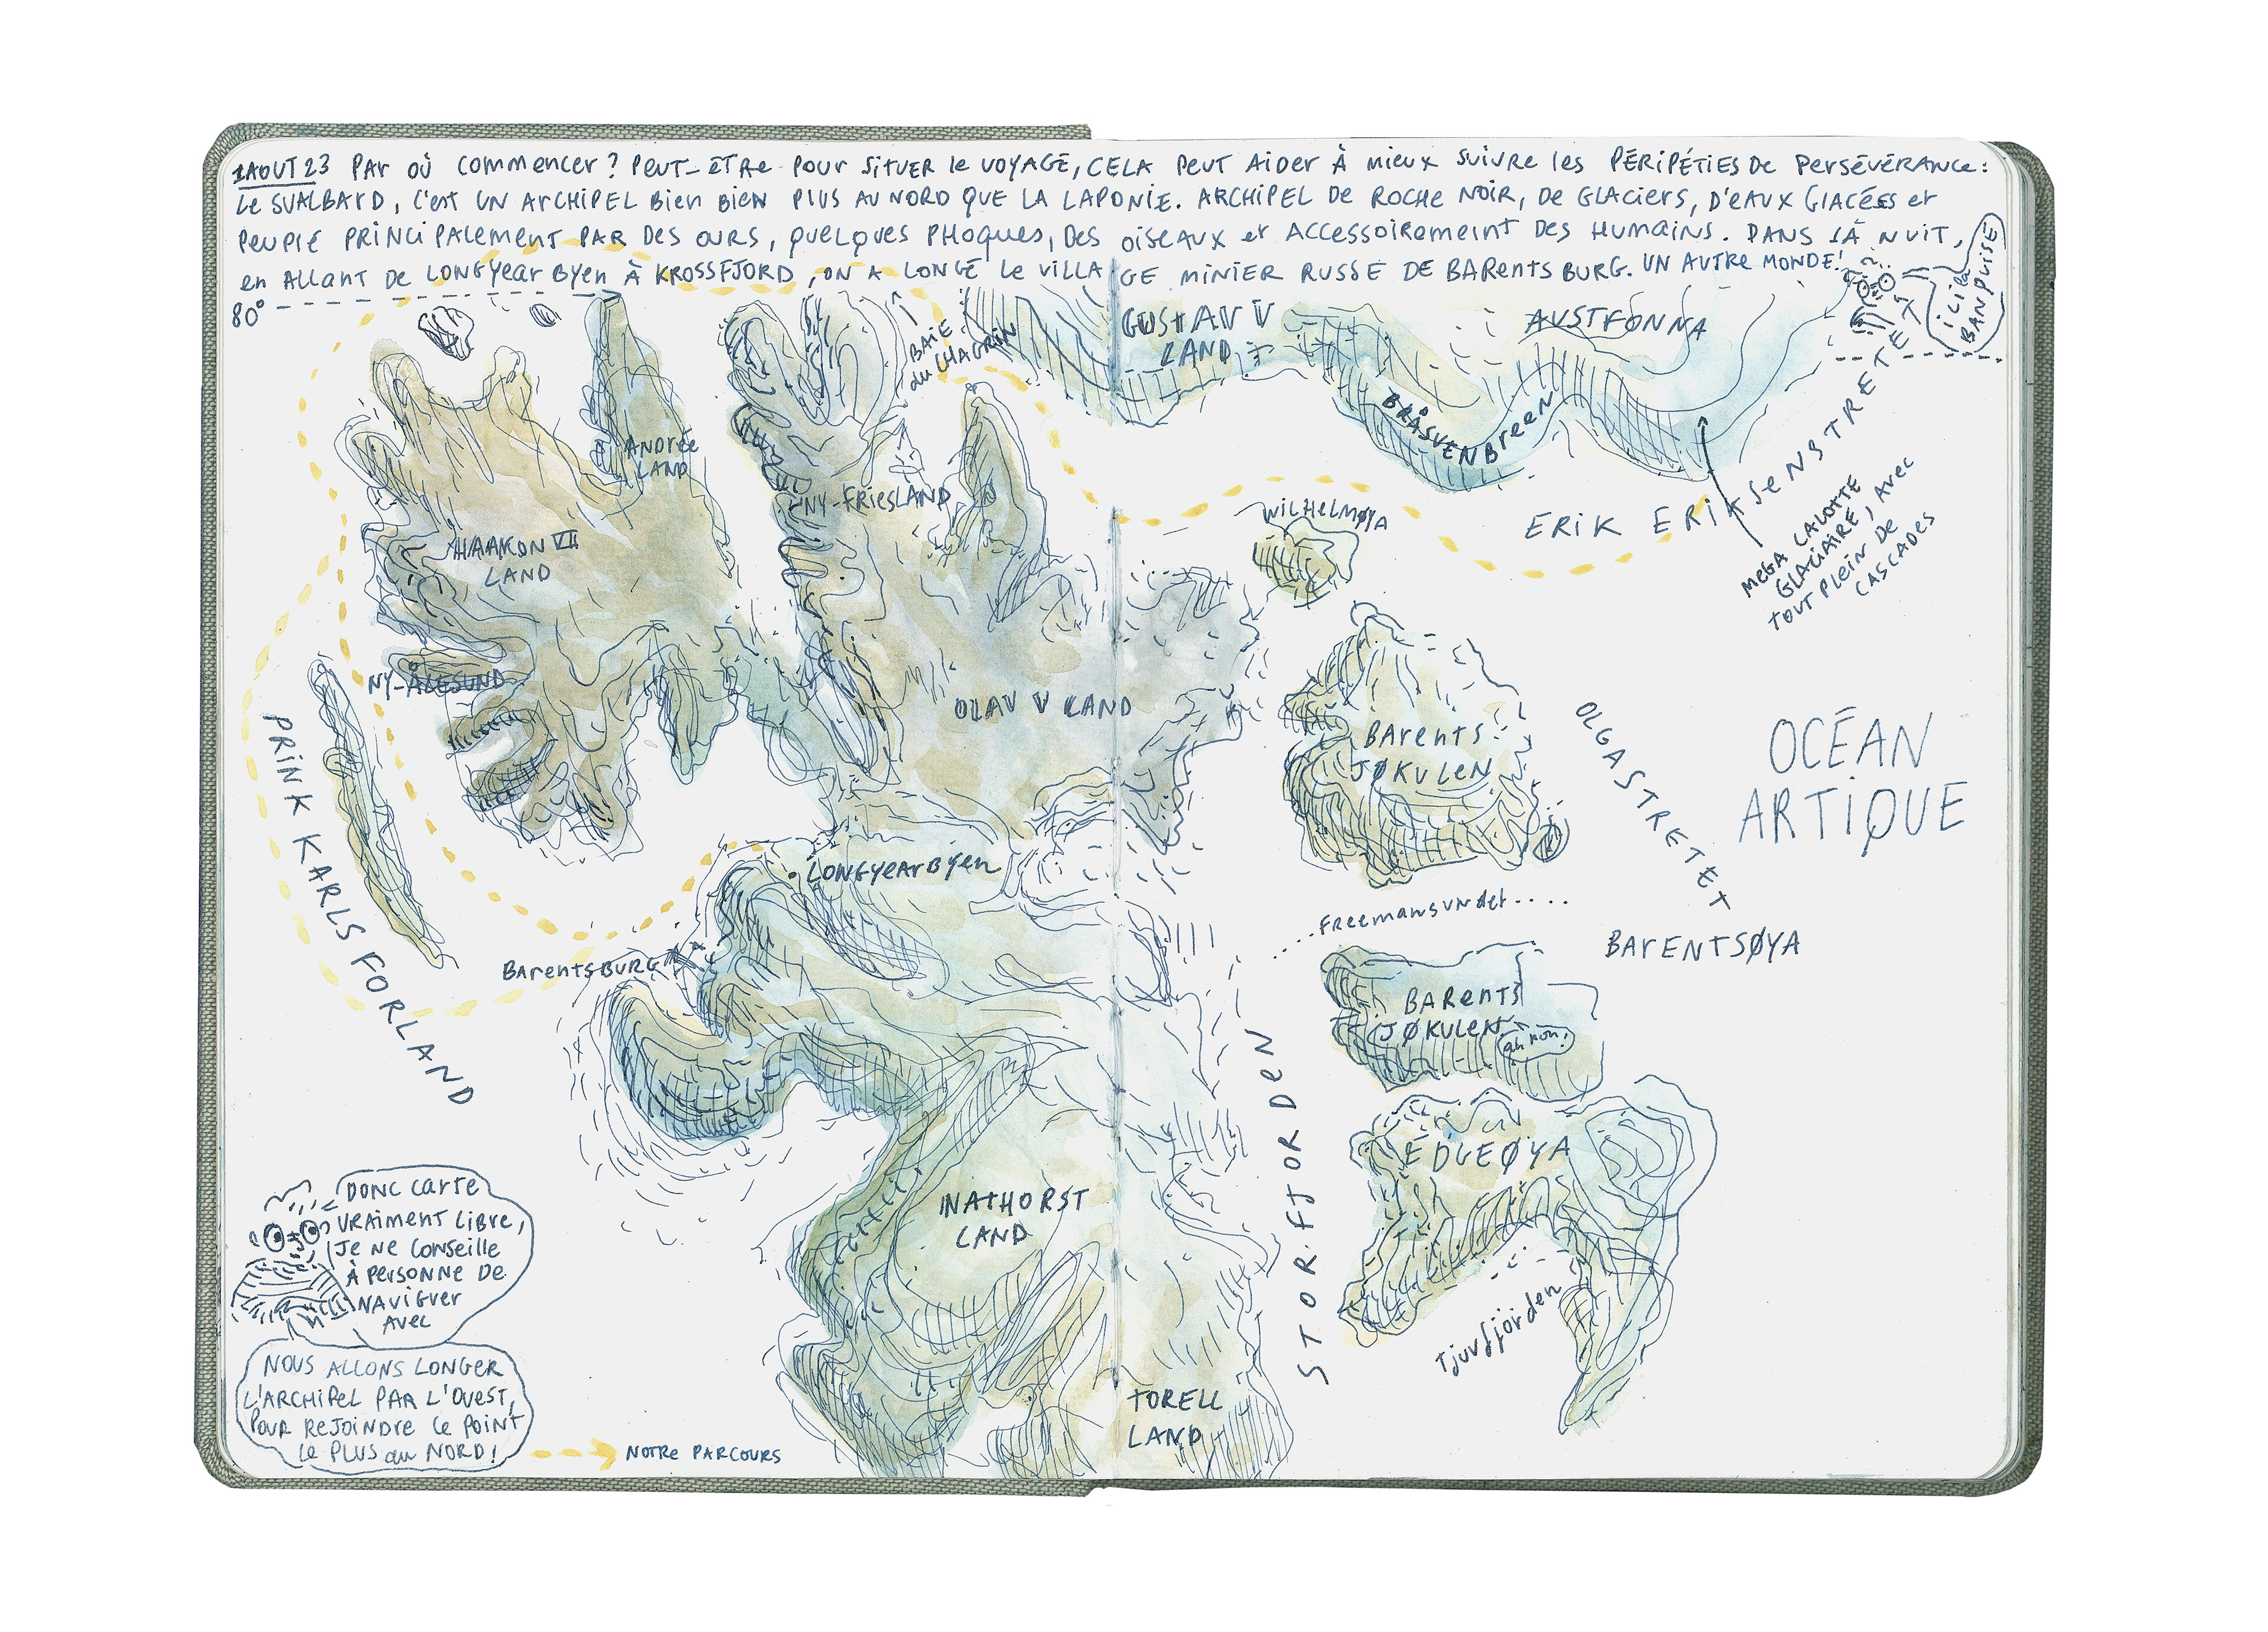 1 AOUT 23 PAR OÙ COMMENCER ? PEUT-ÊTRE POUR SITUER LE VOYAGE, CELA PEUT AIDER À MIEUX SUIVRE LES PÉRIPÉTIES DE PERSÉVÉRANCE :
LE SVALBARD, C'EST UN ARCHIPEL BIEN BIEN PLUS AU NORD QUE LA LAPONIE. ARCHIPEL DE ROCHE NOIR, DE GLACIERS, D'EAUX GLACÉES ET
PEUPLÉ PRINCIPALEMENT PAR DES OURS, QUELQUES PHOQUES, DES OISEAUX ET ACCESSOIREMEINT DES HUMAINS. DANS LA NUIT,
EN ALLANT DE LONGYEAR BYEN À KROSSFJORD, ON A LONGÉ LE VILLAGE MINIER RUSSE DE BARENTSBURG. UN AUTRE MONDE!
80°
ICI LA
BANQUISE
BAIE
DU CHAGRIN
GUSTAV V
LAND
AUSTFONNA
BRÅSVENBREEN
ERIK ERIKSENSTRETET
MEGA CALOTTE
GLACIAIRE, AVEC
TOUT PLEIN DE
CASCADES
ANDRÉE
LAND
NY-FRIESLAND
WILHELMØYA
HAAKON VII
LAND
NY-ÅLESUND
OLAV V LAND
PRINK KARLS FORLAND
BARENTS
JØKULEN
OLGASTRETET
OCÉAN
ARTIQUE
LONGYEARBYEN
FREEMANSUNDET....
BARENTSBURG
BARENTSØYA
BARENTS
JØKULEN
AH NON!
STORFJORDEN
EDGEØYA
Tjuvfjorden
NATHORST
LAND
TORELL
LAND
DONC CARTE
VRAIMENT LIBRE,
JE NE CONSEILLE
À PERSONNE DE
NAVIGUER
AVEC
NOUS ALLONS LONGER
L'ARCHIPEL PAR L'OUEST,
POUR REJOINDRE LE POINT
LE PLUS AU NORD!
NOTRE PARCOURS